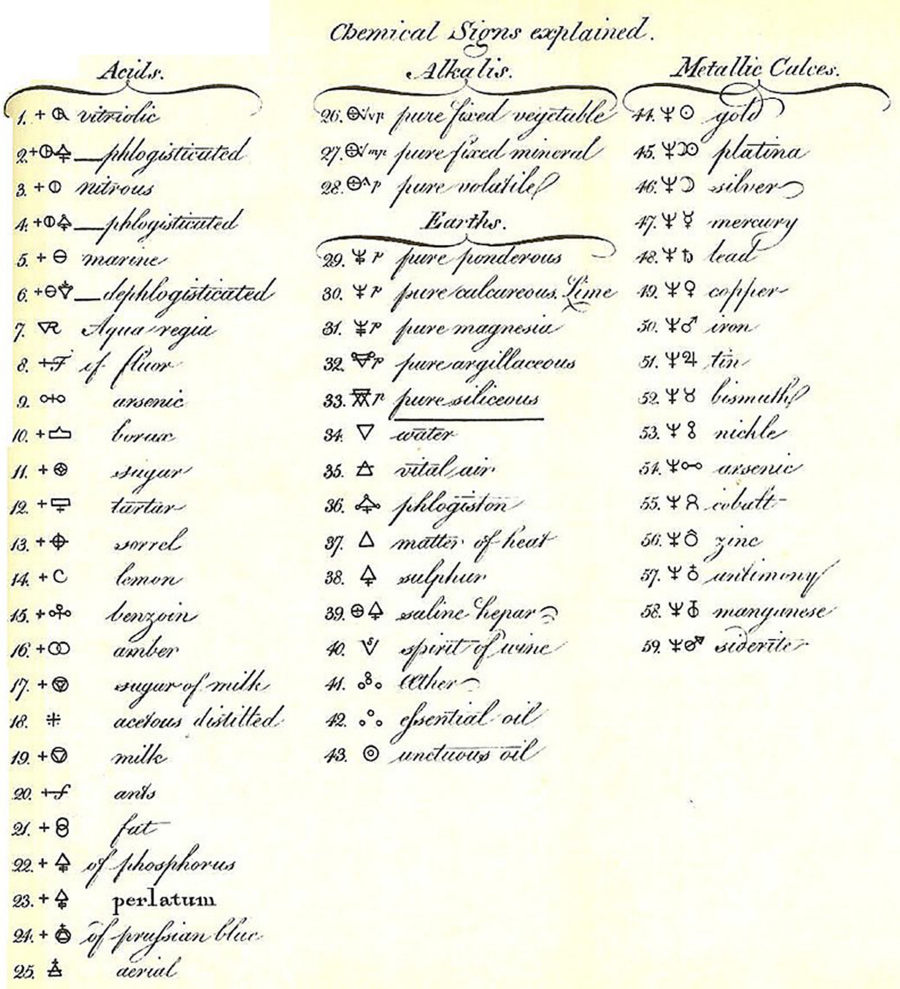 Chemical Signs explained.
Acids.
1. vitriolic
2. phlogisticated
3. nitrous
4. phlogisticated
5. marine
6. dephlogisticated
7. Aqua regia
8. of fluor
9. arsenic
10. borax
11. sugar
12. tartar
13. sorrel
14. lemon
15. benzoin
16. amber
17. sugar of milk
18. acetous distilled
19. milk
20. ants
21. fat
22. of phosphorus
23. perlatum
24. of prussian blue
25. aerial
Alkalis.
26. pure fixed vegetable
27. pure fixed mineral
28. pure volatile
Earths.
29. pure ponderous
30. pure calcareous. Lime
31. pure magnesia
32. pure argillaceous
33. pure siliceous
34. water
35. vital air
36. phlogiston
37. matter of heat
38. sulphur
39. saline hepar
40. spirit of wine
41. Æther
42. essential oil
43. unctuous oil
Metallic Calces.
44. gold
45. platina
46. silver
47. mercury
48. lead
49. copper
50. iron
51. tin
52. bismuth
53. nichle
54. arsenic
55. cobalt
56. zinc
57. antimony
58. manganese
59. siderite